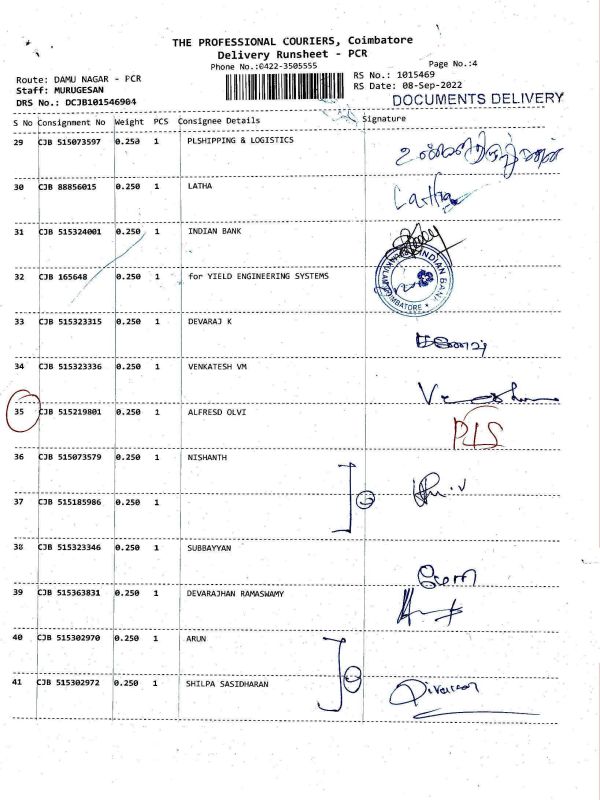 THE PROFESSIONAL COURIERS, Coimbatore
Delivery Runsheet - PCR
Phone No.:0422-3505555
Page No.:4
Route: DAMU NAGAR - PCR
RS No.: 1015469
Staff: MURUGESAN
RS Date: 08-Sep-2022
DRS No.: DCJB101546904
DOCUMENTS DELIVERY
S No Consignment No Weight PCS Consignee Details Signature
29 CJB 515073597 0.250 1 PLSHIPPING & LOGISTICS
30 CJB 88856015 0.250 1 LATHA Latha
31 CJB 515324001 0.250 1 INDIAN BANK
INDIAN BANK
COIMBATORE
32 CJB 165648 0.250 1 for YIELD ENGINEERING SYSTEMS
33 CJB 515323315 0.250 1 DEVARAJ K
34 CJB 515323336 0.250 1 VENKATESH VM
35 CJB 515219801 0.250 1 ALFRESD OLVI
36 CJB 515073579 0.250 1 NISHANTH
37 CJB 515185986 0.250 1
38 CJB 515323346 0.250 1 SUBBAYYAN
39 CJB 515363831 0.250 1 DEVARAJHAN RAMASWAMY
40 CJB 515302970 0.250 1 ARUN
41 CJB 515302972 0.250 1 SHILPA SASIDHARAN